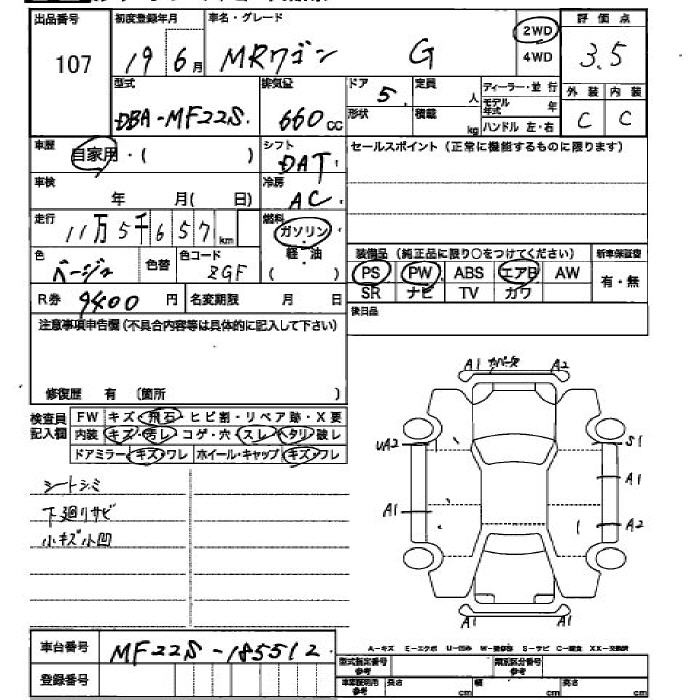 出品番号 初度登録年月 車名・グレード 2WD 評価点
107 19 6月 MRワゴン G 4WD 3.5
型式 排気量 ドア 5 定員 人 ディーラー・並行 外装 内装
DBA-MF22S. 660cc 形状 積載 kg モデル年式 年 C C
ハンドル 左・右
車歴 自家用・( ) シフト DAT セールスポイント(正常に機能するものに限ります)
車検 年 月( 日) 冷房 AC
走行 11万5千657km 燃料 ガソリン
軽・油
( )
色 ベージュ 色替 色コード ZGF
装備品(純正品に限り○をつけてください) 新車保証書
PS PW ABS エアB AW 有・無
SR ナビ TV カワ
R券 9400円 名変期限 月 日 後日品
注意事項申告欄(不具合内容等は具体的に記入して下さい)
修復歴 有 (箇所 )
検査員記入欄 FW キズ・飛石・ヒビ割・リペア跡・X要
内装 キズ・汚レ・コゲ・穴・スレ・ヘタリ・破レ
ドアミラー・キズ・ワレ ホイール・キャップ・キズ・ワレ
シートシミ
下廻リサビ
小キズ小凹
A1 A2
UA2 S1
A1
A1 A2
A1 A1
A-キズ E-エクボ U-凹み S-サビ
車台番号 MF22S-185512
型式指定番号 参考 類別区分番号 参考
登録番号 長さ cm 幅 cm 高さ cm